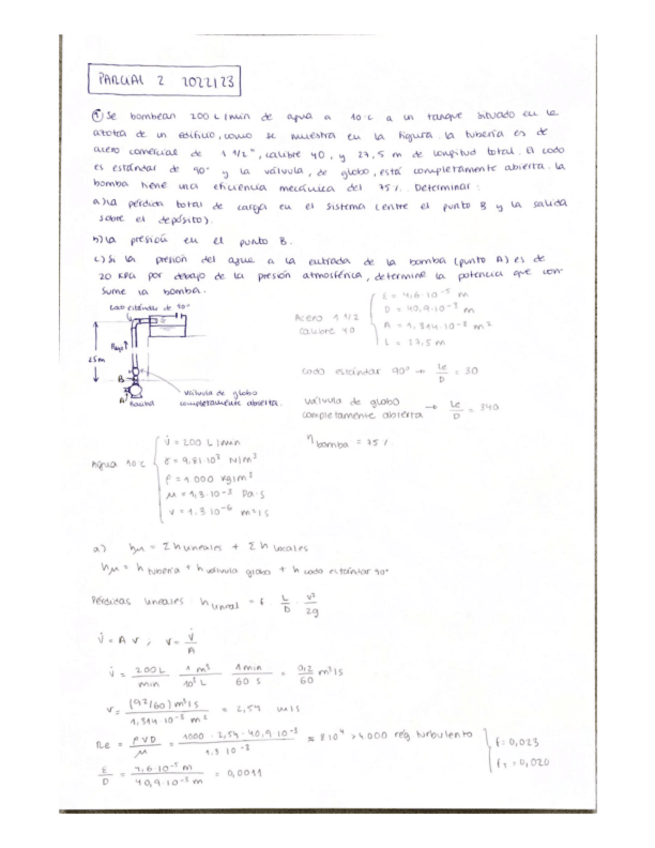 PARCIAL 2 2022/23
① Se bombean 200 L/min de agua a 10°C a un tanque situado en la
azotea de un edificio, como se muestra en la figura. La tubería es de
acero comercial de 1 1/2", calibre 40, y 27,5 m de longitud total. El codo
es estándar de 90° y la válvula, de globo, está completamente abierta. La
bomba tiene una eficiencia mecánica del 75%. Determinar:
a) La pérdida total de carga en el sistema (entre el punto B y la salida
sobre el depósito).
b) La presión en el punto B.
c) Si la presión del agua a la entrada de la bomba (punto A) es de
20 kPa por debajo de la presión atmosférica, determine la potencia que con
sume la bomba.
Codo estándar de 90°
Flujo
25m
B
A
Bomba
válvula de globo
completamente abierta.
Acero 1 1/2
calibre 40
ε = 4,6·10⁻⁵ m
D = 40,9·10⁻³ m
A = 1,314·10⁻³ m²
L = 27,5 m
codo estándar 90° → Le/D = 30
válvula de globo
completamente abierta → Le/D = 340
η bomba = 75%
Agua 10°C
V̇ = 200 L/min
γ = 9,81·10³ N/m³
ρ = 1.000 kg/m³
μ = 1,3·10⁻³ Pa·s
ν = 1,3·10⁻⁶ m²/s
a) hm = Σ h lineales + Σ h locales
hm = h tubería + h válvula globo + h codo estándar 90°
Pérdidas lineales: h lineal = f · L/D · v²/2g
V̇ = A v ; v = V̇/A
V̇ = 200 L/min · 1 m³/10³ L · 1 min/60 s = 0,2/60 m³/s
v = (0,2/60) m³/s / 1,314·10⁻³ m² = 2,54 m/s
Re = ρVD/μ = 1000 · 2,54 · 40,9·10⁻³ / 1,3·10⁻³ ≈ 8·10⁴ > 4.000 rég. turbulento
f = 0,023
f_T = 0,020
ε/D = 4,6·10⁻⁵ m / 40,9·10⁻³ m = 0,0011